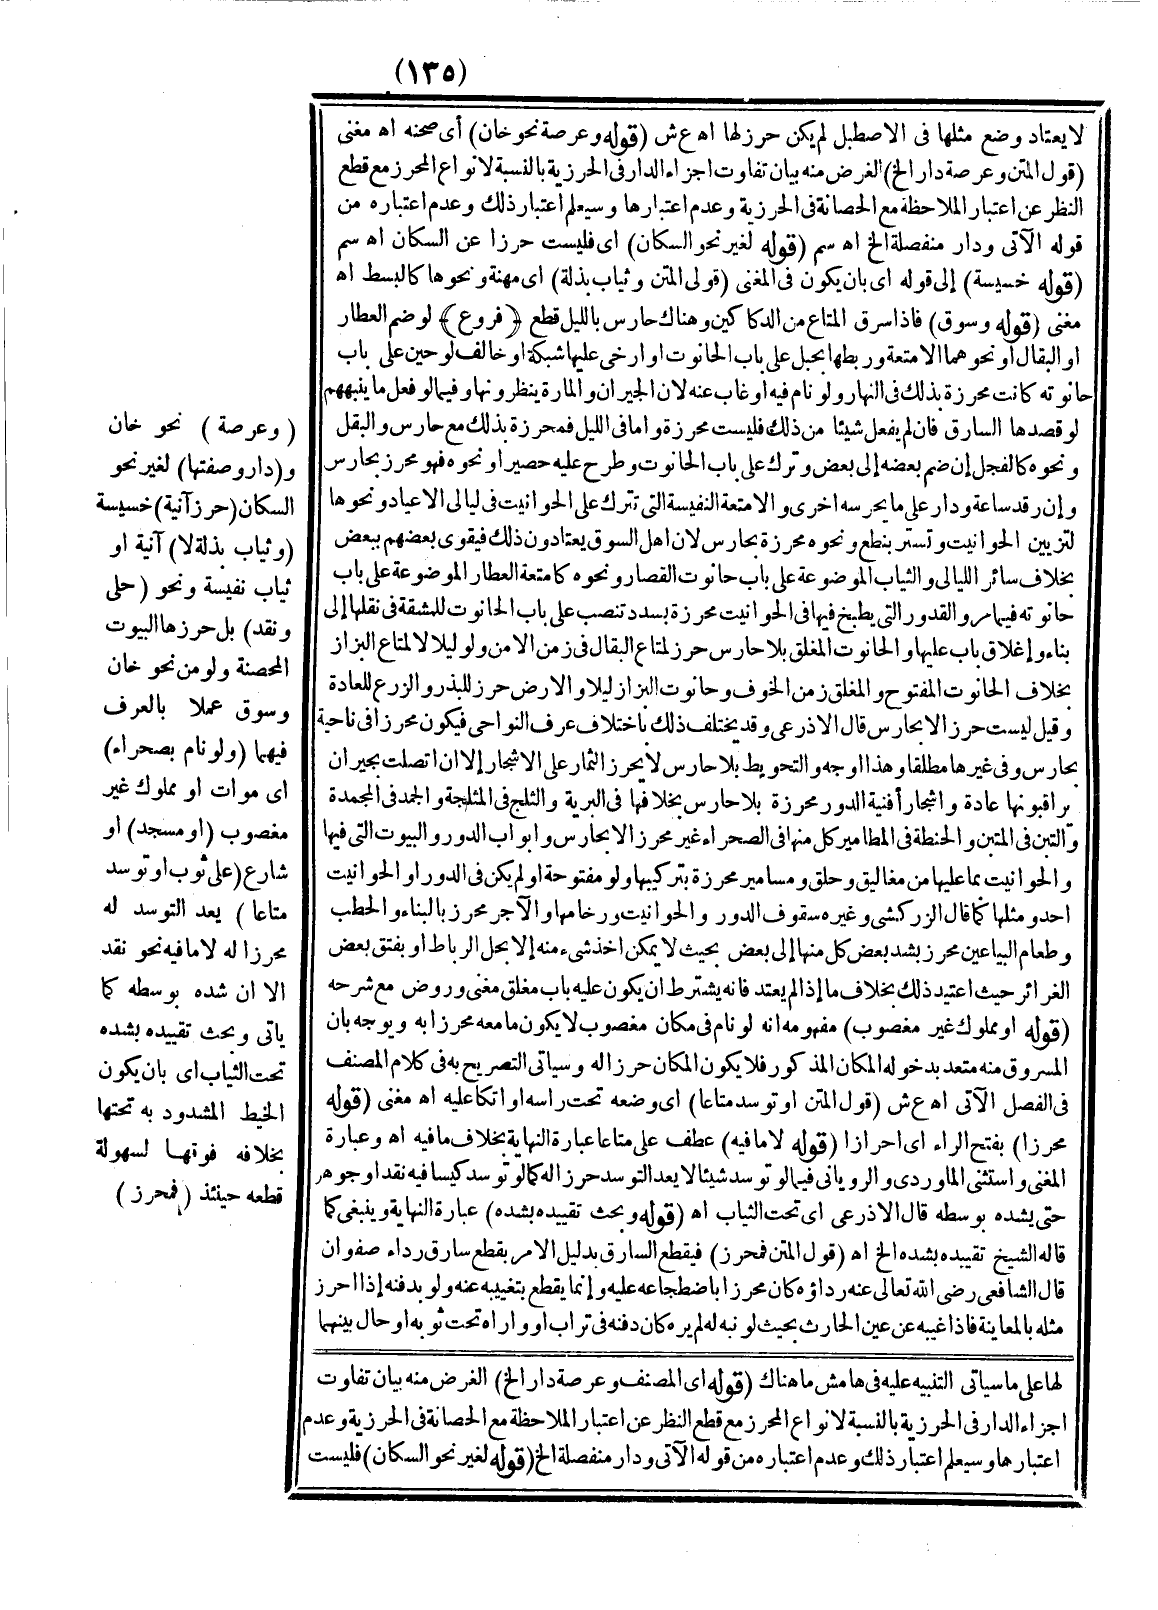 (١٣٥)
لا يعتاد وضع مثلها فى الاصطبل لم يكن حرزلها اه ع ش (قوله وعرصة نحو خان) أى صحنه اه مغنى
(قول المتن وعرصة دار الخ) الغرض منه بيان تفاوت اجزاء الدار فى الحرزية بالنسبة لانواع المحرز مع قطع
النظر عن اعتبار الملاحظة مع الحصانة فى الحرزية وعدم اعتبارها وسيعلم اعتبار ذلك وعدم اعتباره من
قوله الآتى ودار منفصلة الخ اه سم (قوله لغير نحو السكان) اى فليست حرزا عن السكان اه سم
(قوله خسيسة) إلى قوله اى بان يكون فى المغنى (قولى المتن وثياب بذلة) اى مهنة ونحوها كالبسط اه
مغنى (قوله وسوق) فاذا سرق المتاع من الدكاكين وهناك حارس بالليل قطع ﴿فروع﴾ لو ضم العطار
او البقال او نحوهما الامتعة وربطها بحبل على باب الحانوت او ارخى عليها شبكة او خالف لوحين على باب
حانوته كانت محرزة بذلك فى النهار ولو نام فيه او غاب عنه لان الجيران والمارة ينظرونها وفيما لو فعل ما ينبههم
لو قصدها السارق فان لم يفعل شيئا من ذلك فليست محرزة واما فى الليل فمحرزة بذلك مع حارس والبقل
ونحوه كالفجل إن ضم بعضه إلى بعض وترك على باب الحانوت وطرح عليه حصير او نحوه فهو محرز بحارس
وإن رقد ساعة ودار على ما يحرسه اخرى والامتعة النفيسة التى تترك على الحوانيت فى ليالى الاعياد ونحوها
لتزيين الحوانيت وتستر بنطع ونحوه محرزة بحارس لان اهل السوق يعتادون ذلك فيقوى بعضهم ببعض
بخلاف سائر الليالى والثياب الموضوعة على باب حانوت القصار ونحوه كامتعة العطار الموضوعة على باب
حانوته فيما مر والقدور التى يطبخ فيها فى الحوانيت محرزة بسدد تنصب على باب الحانوت للمشقة فى نقلها إلى
بناء وإغلاق باب عليها والحانوت المغلق بلا حارس حرز لمتاع البقال فى زمن الامن ولو ليلا لا لمتاع البزاز
بخلاف الحانوت المفتوح والمغلق زمن الخوف وحانوت البزاز ليلا والارض حرز للبذر والزرع للعادة
وقيل ليست حرز الا بحارس قال الاذرعى وقد يختلف ذلك باختلاف عرف النواحى فيكون محرزا فى ناحية
بحارس وفى غيرها مطلقا وهذا اوجه والتحويط بلا حارس لا يحرز الثمار على الاشجار إلا ان اتصلت بجيران
يراقبونها عادة واشجار أفنية الدور محرزة بلا حارس بخلافها فى البرية والثلج فى المثلجة والجمد فى المجمدة
والتبن فى المتبن والحنطة فى المطامير كل منها فى الصحراء غير محرز الا بحارس وابواب الدور والبيوت التى فيها
والحوانيت بما عليها من مغاليق وحلق ومسامير محرزة بتركيبها ولو مفتوحة او لم يكن فى الدور او الحوانيت
احد ومثلها كما قال الزركشى وغيره سقوف الدور والحوانيت ورخامها والآجر محرز بالبناء والحطب
وطعام البياعين محرز بشد بعض كل منها إلى بعض بحيث لا يمكن اخذ شىء منه إلا بحل الرباط او بفتق بعض
الغرائر حيث اعتيد ذلك بخلاف ما إذا لم يعتد فانه يشترط ان يكون عليه باب مغلق مغنى وروض مع شرحه
(قوله او مملوك غير مغصوب) مفهومه انه لو نام فى مكان مغصوب لا يكون ما معه محرزا به ويوجه بان
المسروق منه متعد بدخوله المكان المذكور فلا يكون المكان حرزا له وسياتى التصريح به فى كلام المصنف
فى الفصل الآتى اه ع ش (قول المتن او توسد متاعا) اى وضعه تحت راسه او اتكا عليه اه مغنى (قوله
محرزا) بفتح الراء اى احرازا (قوله لا مافيه) عطف على متاعا عبارة النهاية بخلاف مافيه اه وعبارة
المغنى واستثنى الماوردى والرويانى فيما لو توسد شيئا لا يعد التوسد حرزا له كما لو توسد كيسا فيه نقد او جوهر
حتى يشده بوسطه قال الاذرعى اى تحت الثياب اه (قوله وبحث تقييده بشده) عبارة النهاية وينبغى كما
قاله الشيخ تقييده بشده الخ اه (قول المتن فمحرز) فيقطع السارق بدليل الامر بقطع سارق رداء صفوان
قال الشافعى رضى الله تعالى عنه رداؤه كان محرزا باضطجاعه عليه وإنما يقطع بتغييبه عنه ولو بدفنه إذا احرز
مثله بالمعاينة فاذا غيبه عن عين الحارث بحيث لو نبه له لم يره كان دفنه فى تراب او واراه تحت ثوبه او حال بينهما
(وعرصة) نحو خان
و(دار وصفتها) لغير نحو
السكان (حرز آنية) خسيسة
(وثياب بذلة لا) آنية او
ثياب نفيسة ونحو (حلى
ونقد) بل حرزها البيوت
المحصنة ولو من نحو خان
وسوق عملا بالعرف
فيهما (ولو نام بصحراء)
اى موات او مملوك غير
مغصوب (او مسجد) او
شارع (على ثوب او توسد
متاعا) يعد التوسد له
محرزا له لا مافيه نحو نقد
الا ان شده بوسطه كما
ياتى وبحث تقييده بشده
تحت الثياب اى بان يكون
الخيط المشدود به تحتها
بخلافه فوقها لسهولة
قطعه حينئذ (فمحرز)
لها على ما سياتى التنبيه عليه فى هامش ما هناك (قوله اى المصنف وعرصة دار الخ) الغرض منه بيان تفاوت
اجزاء الدار فى الحرزية بالنسبة لانواع المحرز مع قطع النظر عن اعتبار الملاحظة مع الحصانة فى الحرزية وعدم
اعتبارها وسيعلم اعتبار ذلك وعدم اعتباره من قوله الآتى ودار منفصلة الخ (قوله لغير نحو السكان) فليست